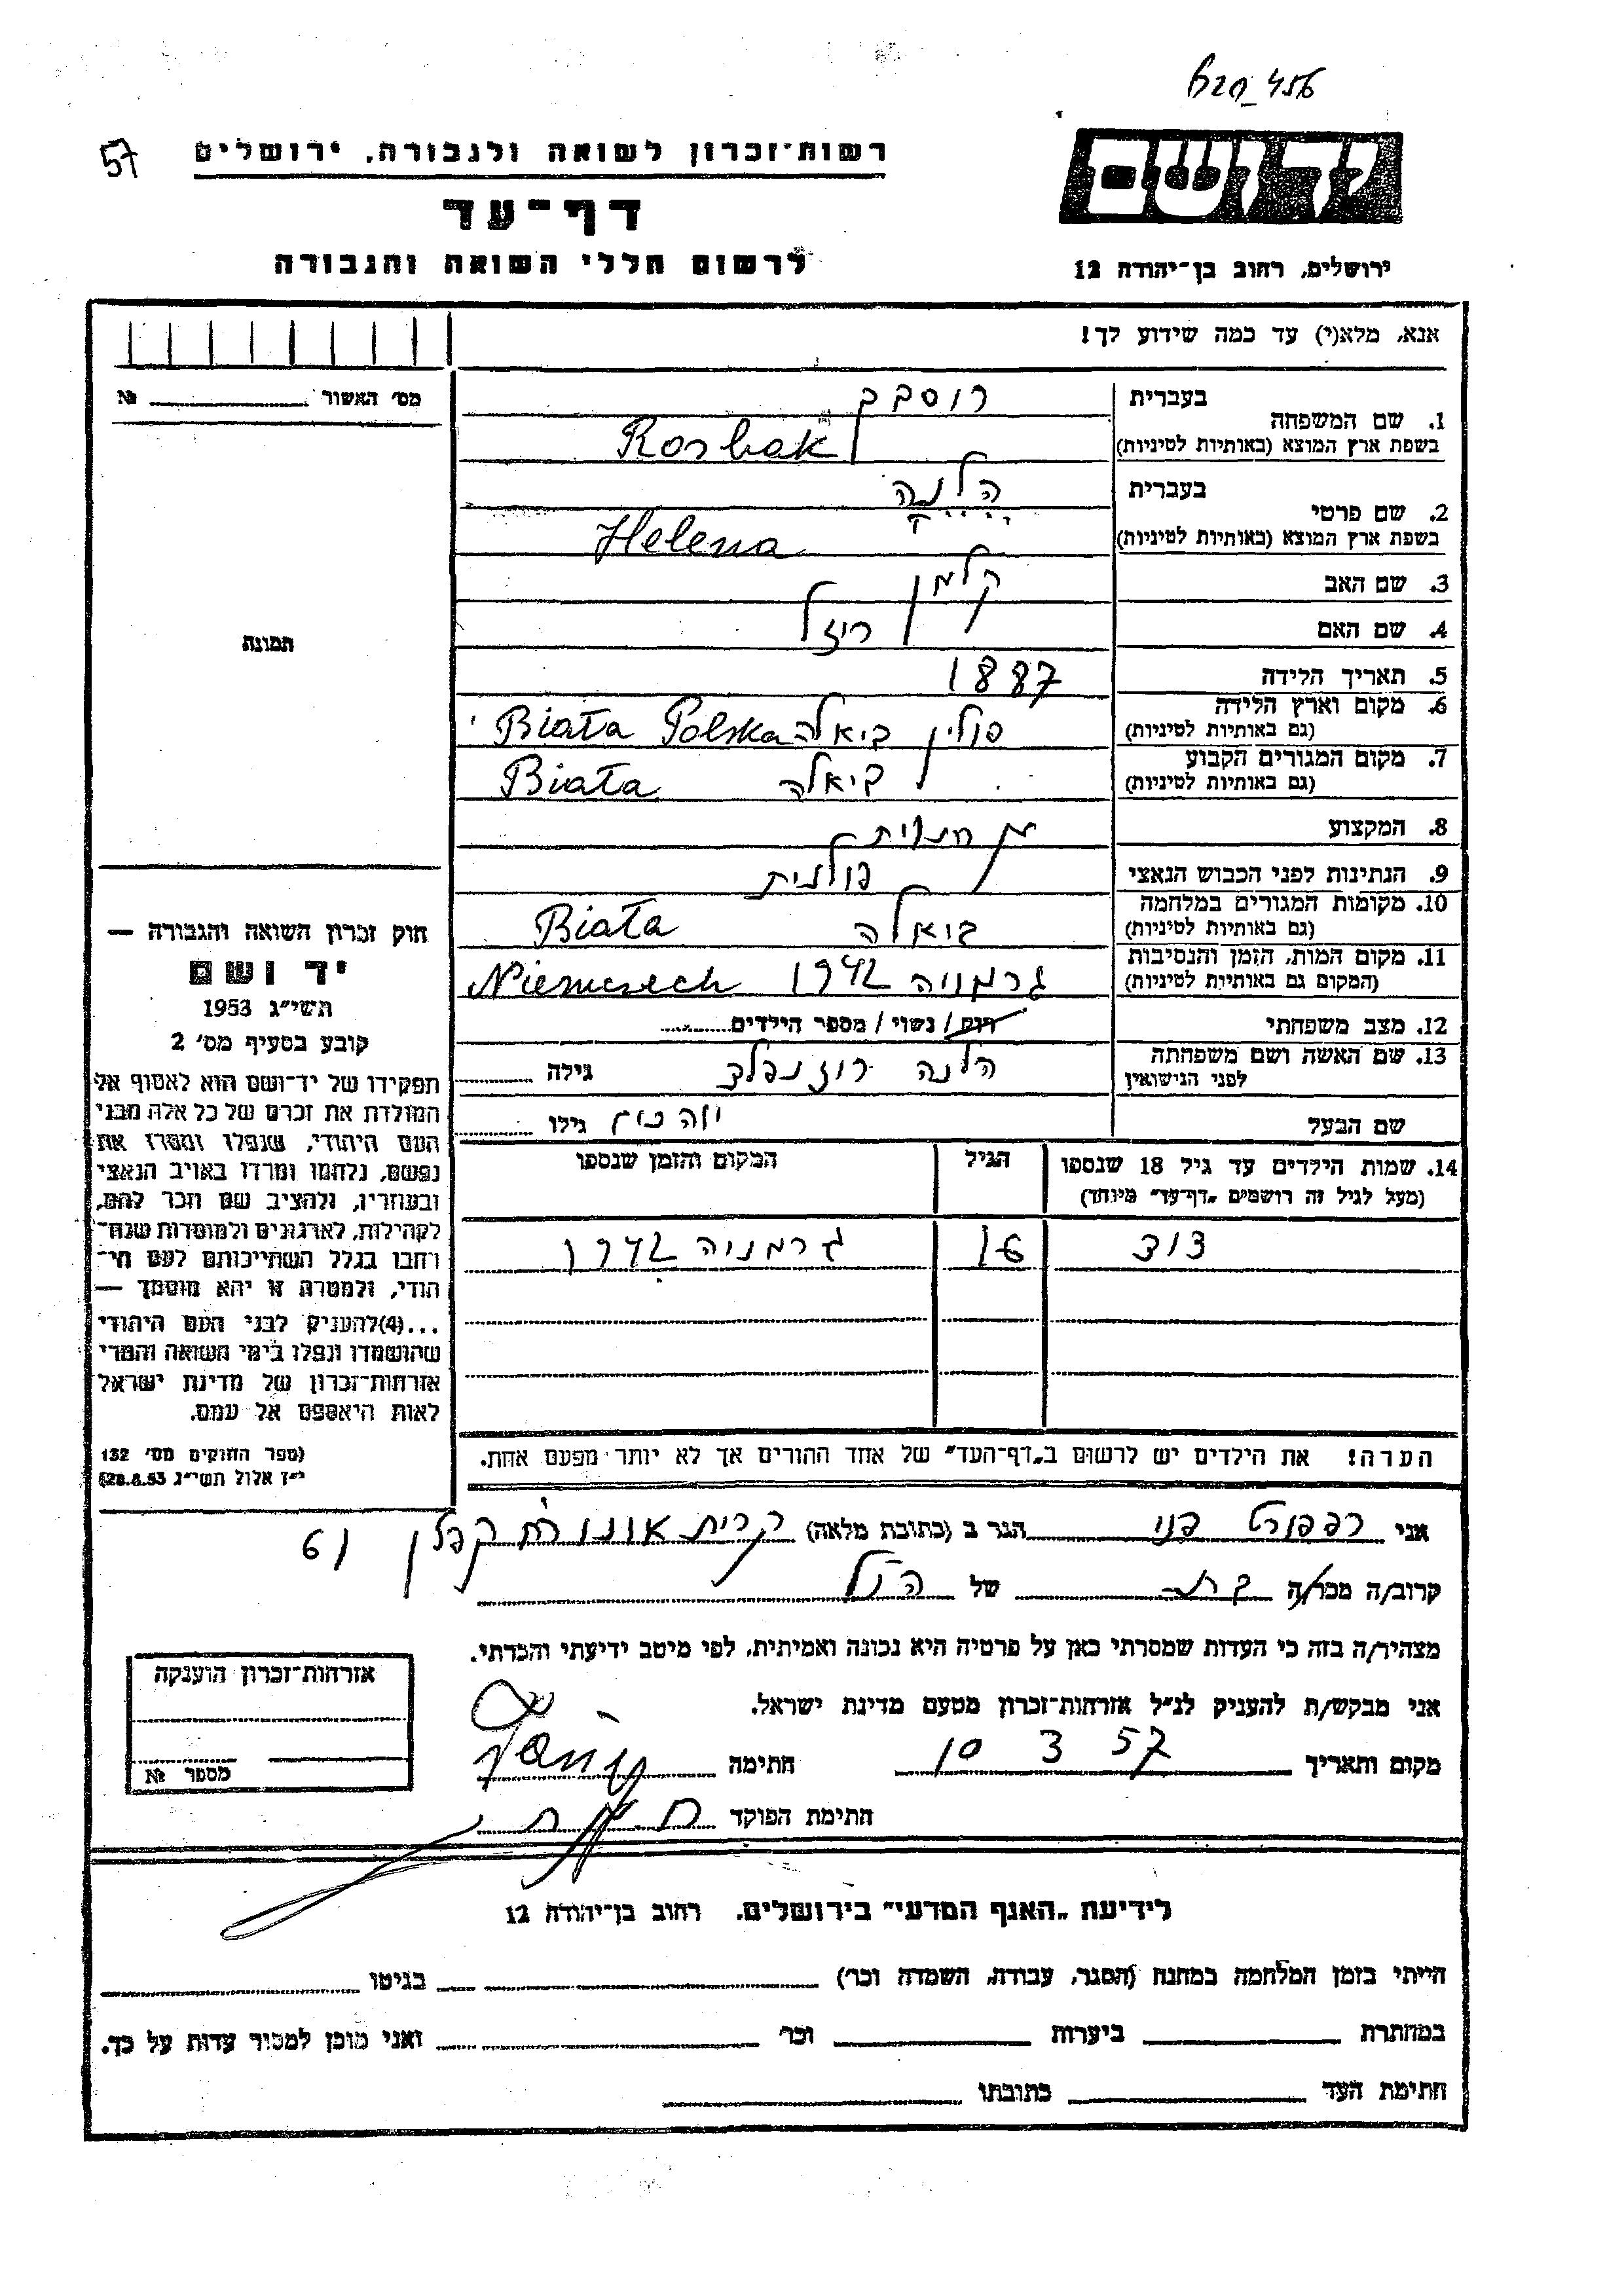 456
57
רשות־זכרון לשואה ולגבורה, ירושלים
יד ושם
דף־עד
לרשום חללי השואה והגבורה
ירושלים, רחוב בן־יהודה 12
אנא, מלא(י) עד כמה שידוע לך!
מס׳ האשור № ______
1. שם המשפחה
בעברית
רוסבק
בשפת ארץ המוצא (באותיות לטיניות)
Rosbak
2. שם פרטי
בעברית
הלנה
בשפת ארץ המוצא (באותיות לטיניות)
Helena
3. שם האב קלמן
4. שם האם רייזל
5. תאריך הלידה 1887
6. מקום וארץ הלידה
(גם באותיות לטיניות) פולין ביאלה Biała Polska
7. מקום המגורים הקבוע
(גם באותיות לטיניות) ביאלה Biała
8. המקצוע חנוית
9. הנתינות לפני הכבוש הנאצי פולנית
10. מקומות המגורים במלחמה
(גם באותיות לטיניות) ביאלה Biała
11. מקום המות, הזמן והנסיבות
(המקום גם באותיות לטיניות) גרמניה 1942 Niemczech
12. מצב משפחתי רווק / נשוי / מספר הילדים
13. שם האשה ושם משפחתה
לפני הנישואין הלנה רוזנפלד גילה
שם הבעל גילו
14. שמות הילדים עד גיל 18 שנספו
(מעל לגיל זה רושמים „דף־עד״ מיוחד)
הגיל
המקום והזמן שנספו
דוד 16 גרמניה 1942
תמונה
חוק זכרון השואה והגבורה —
יד ושם
תשי״ג 1953
קובע בסעיף מס׳ 2
תפקידו של יד־ושם הוא לאסוף אל
המולדת את זכרם של כל אלה מבני
העם היהודי, שנפלו ומסרו את
נפשם, נלחמו ומרדו באויב הנאצי
ובעוזריו, ולהציב שם וזכר להם,
לקהילות, לארגונים ולמוסדות שנח־
רבו בגלל השתייכותם לעם הי־
הודי, ולמטרה זו יהא מוסמך —
...(4)להעניק לבני העם היהודי
שהושמדו ונפלו בימי השואה והמרי
אזרחות־זכרון של מדינת ישראל
לאות היאספם אל עמם.
(ספר החוקים מס׳ 132
י״ז אלול תשי״ג 28.8.53)
הערה! את הילדים יש לרשום ב„דף־העד״ של אחד ההורים אך לא יותר מפעם אחת.
אני רפפורט פני הגר ב (כתובת מלאה) קרית אונו רח קפלן 61
קרוב/ה מכר/ה בת של הנ״ל
מצהיר/ה בזה כי העדות שמסרתי כאן על פרטיה היא נכונה ואמיתית, לפי מיטב ידיעתי והכרתי.
אני מבקש/ת להעניק לנ״ל אזרחות־זכרון מטעם מדינת ישראל.
מקום ותאריך 10 3 57 חתימה
חתימת הפוקד
אזרחות־זכרון הוענקה
מספר №
לידיעת „האגף המדעי״ בירושלים, רחוב בן־יהודה 12
הייתי בזמן המלחמה במחנה (הסגר, עבודה, השמדה וכו׳) ______ בגיטו ______
במחתרת ______ ביערות ______ וכו׳ ______ ואני מוכן למסור עדות על כך.
חתימת העד ______ כתובתו ______